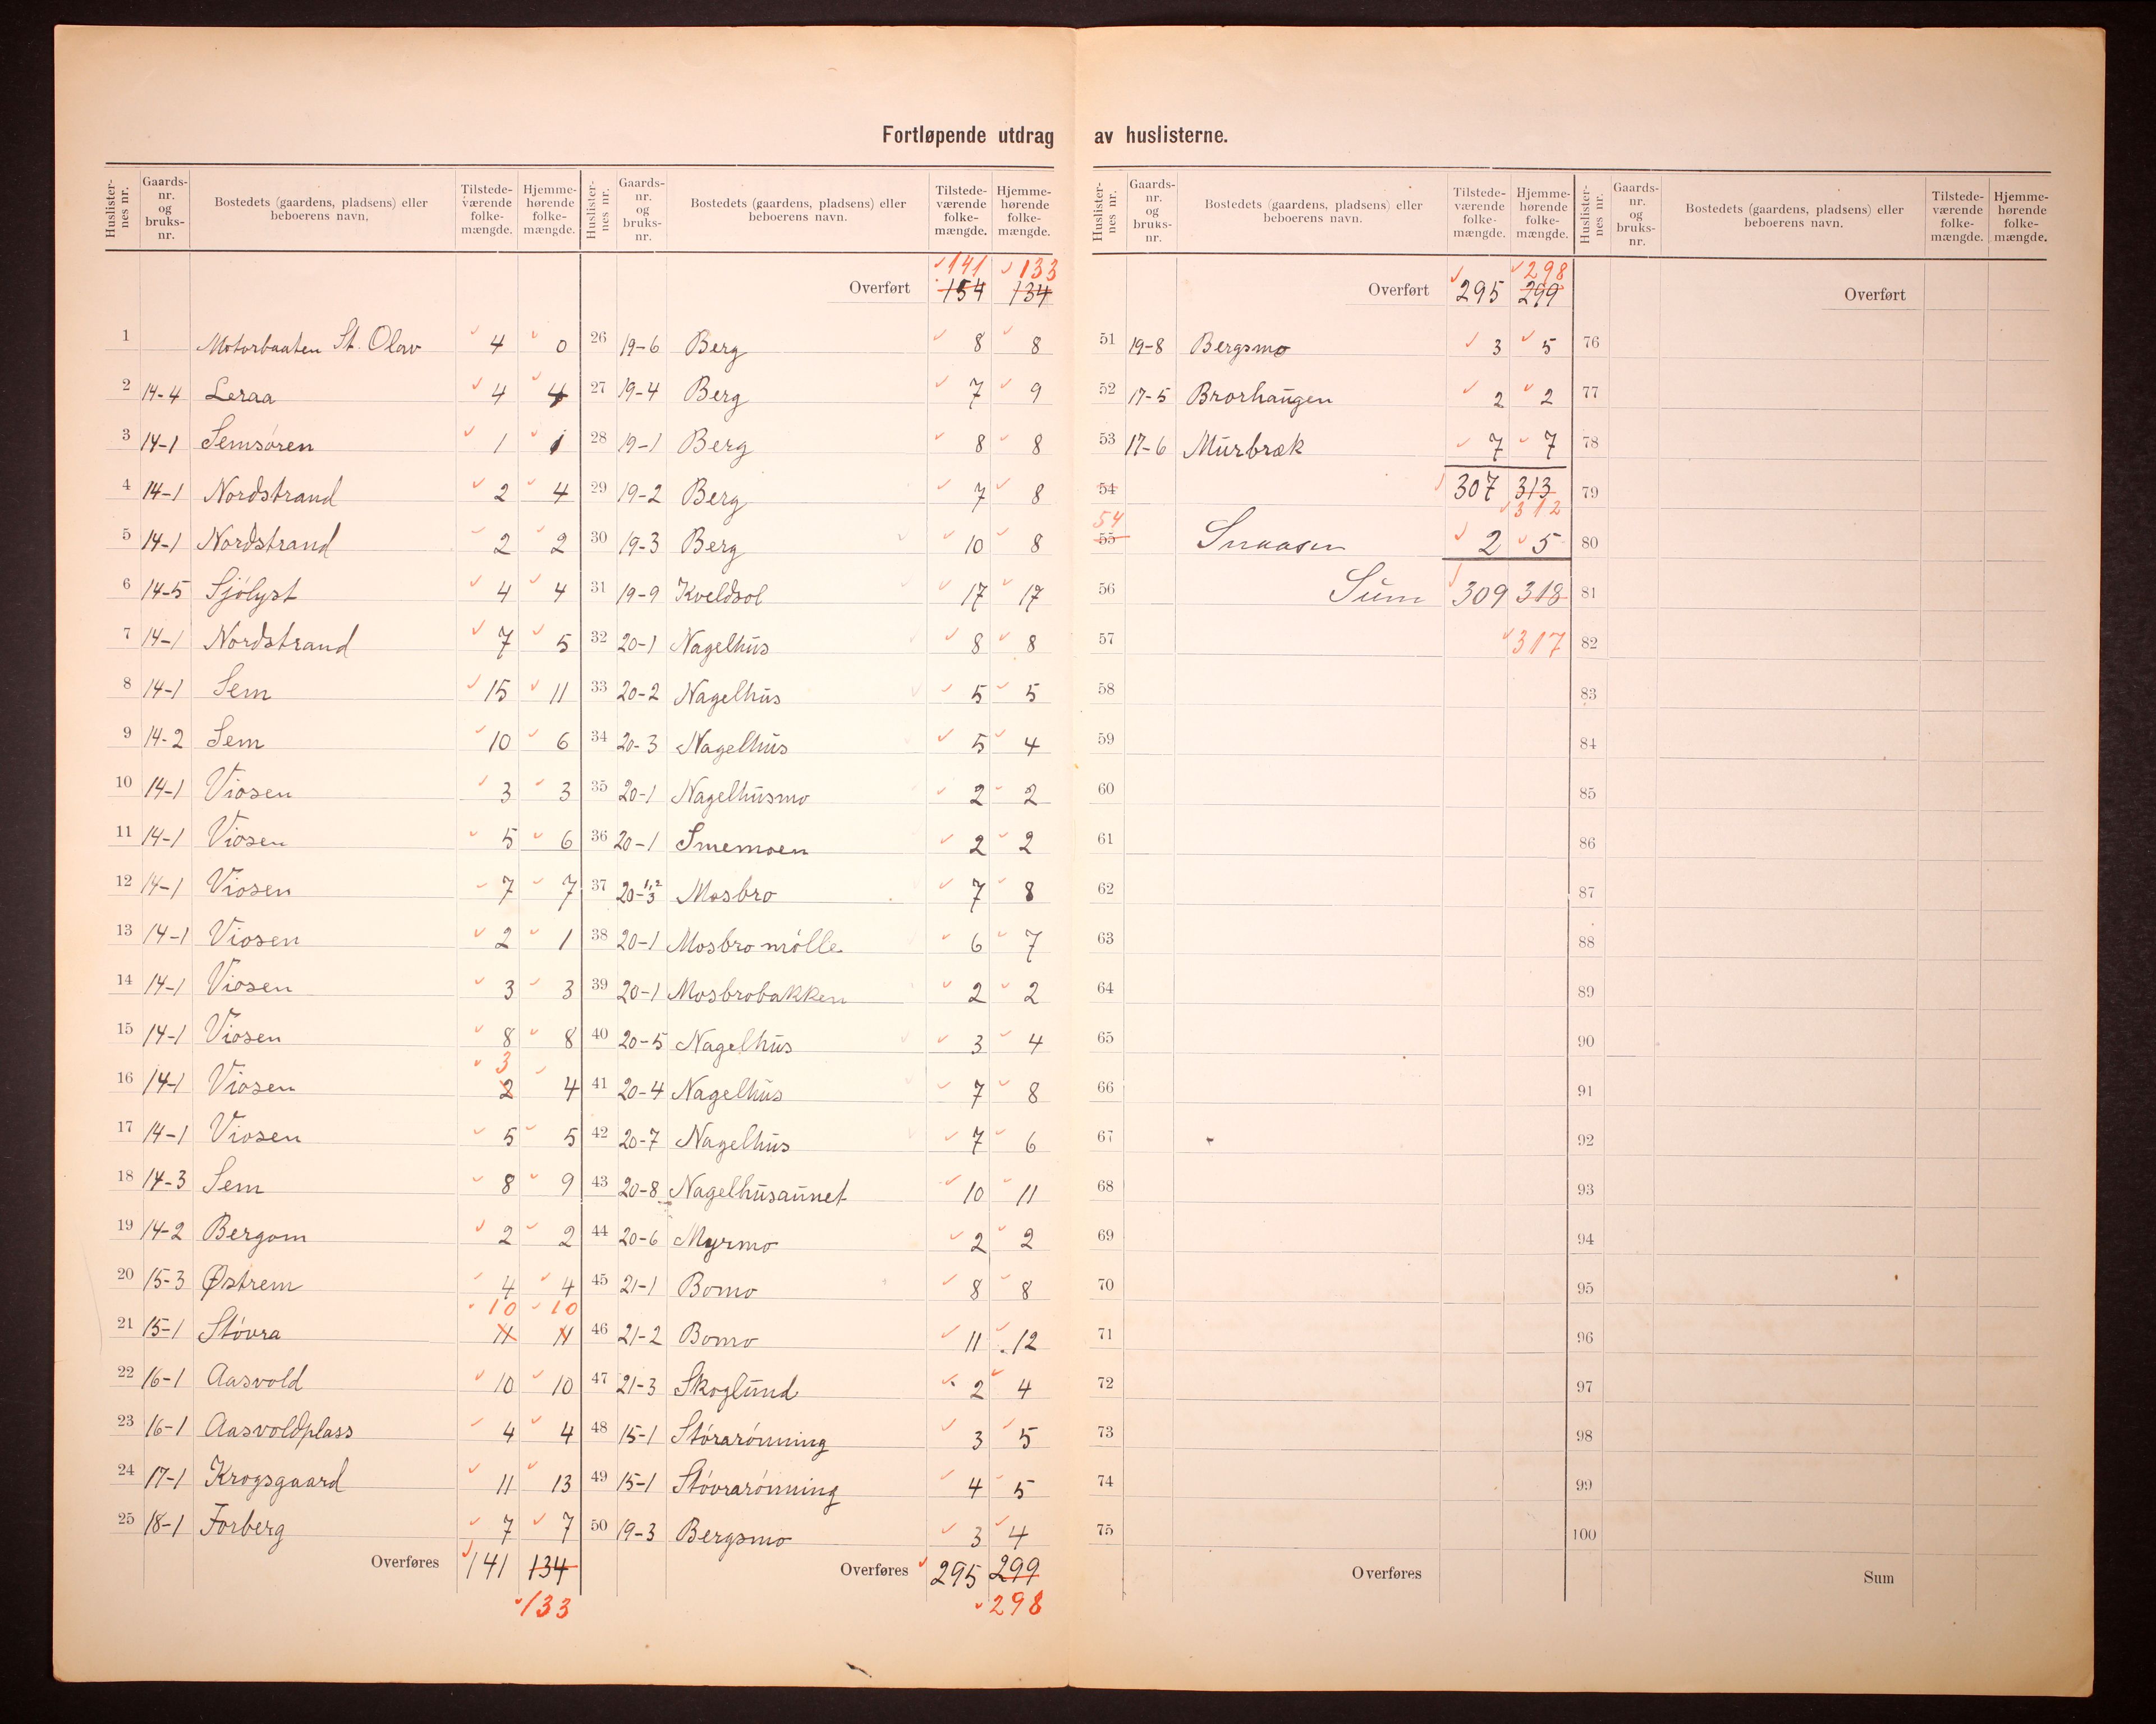 Fortløpende utdrag av huslisterne.
Huslisternes nr. Gaards-nr. og bruks-nr. Bostedets (gaardens, pladsens) eller beboerens navn. Tilstedeværende folkemængde. Hjemmehørende folkemængde.
1 Motorbaaten St. Olav 4 0
2 14-4 Leraa 4 4
3 14-1 Semsören 1 1
4 14-1 Nordstrand 2 4
5 14-1 Nordstrand 2 2
6 14-5 Sjölyst 4 4
7 14-1 Nordstrand 7 5
8 14-1 Sem 15 11
9 14-2 Sem 10 6
10 14-1 Viosen 3 3
11 14-1 Viosen 5 6
12 14-1 Viosen 7 7
13 14-1 Viosen 2 1
14 14-1 Viosen 3 3
15 14-1 Viosen 8 8
3
16 14-1 Viosen 2 4
17 14-1 Viosen 5 5
18 14-3 Sem 8 9
19 14-2 Bergom 2 2
20 15-3 Østrem 4 4
10 10
21 15-1 Stövra 11 11
22 16-1 Aasvold 10 10
23 16-1 Aasvoldplass 4 4
24 17-1 Krogsgaard 11 13
25 18-1 Forberg 7 7
Overføres 141 134
133
Huslisternes nr. Gaards-nr. og bruks-nr. Bostedets (gaardens, pladsens) eller beboerens navn. Tilstedeværende folkemængde. Hjemmehørende folkemængde.
141 133
Overført 154 134
26 19-6 Berg 8 8
27 19-4 Berg 7 9
28 19-1 Berg 8 8
29 19-2 Berg 7 8
30 19-3 Berg 10 8
31 19-9 Kveldsol 17 17
32 20-1 Nagelhus 8 8
33 20-2 Nagelhus 5 5
34 20-3 Nagelhus 5 4
35 20-1 Nagelhusmo 2 2
36 20-1 Smemoen 2 2
37 20-1,2 3 Mosbro 7 8
38 20-1 Mosbro mölle 6 7
39 20-1 Mosbrobakken 2 2
40 20-5 Nagelhus 3 4
41 20-4 Nagelhus 7 8
42 20-7 Nagelhus 7 6
43 20-8 Nagelhusaunet 10 11
44 20-6 Myrmo 2 2
45 21-1 Bomo 8 8
46 21-2 Bomo 11 12
47 21-3 Skoglund 2 4
48 15-1 Störarönning 3 5
49 15-1 Stövrarönning 4 5
50 19-3 Bergsmo 3 4
Overføres 295 299
298
Huslisternes nr. Gaards-nr. og bruks-nr. Bostedets (gaardens, pladsens) eller beboerens navn. Tilstedeværende folkemængde. Hjemmehørende folkemængde.
298
Overført 295 299
51 19-8 Bergsmo 3 5
52 17-5 Brorhaugen 2 2
53 17-6 Murbræk 7 7
54 307 313
312
54
55 Snaasen 2 5
56 Sum 309 318
57 317
58
59
60
61
62
63
64
65
66
67
68
69
70
71
72
73
74
75
Overføres
Huslisternes nr. Gaards-nr. og bruks-nr. Bostedets (gaardens, pladsens) eller beboerens navn. Tilstedeværende folkemængde. Hjemmehørende folkemængde.
Overført
76
77
78
79
80
81
82
83
84
85
86
87
88
89
90
91
92
93
94
95
96
97
98
99
100
Sum